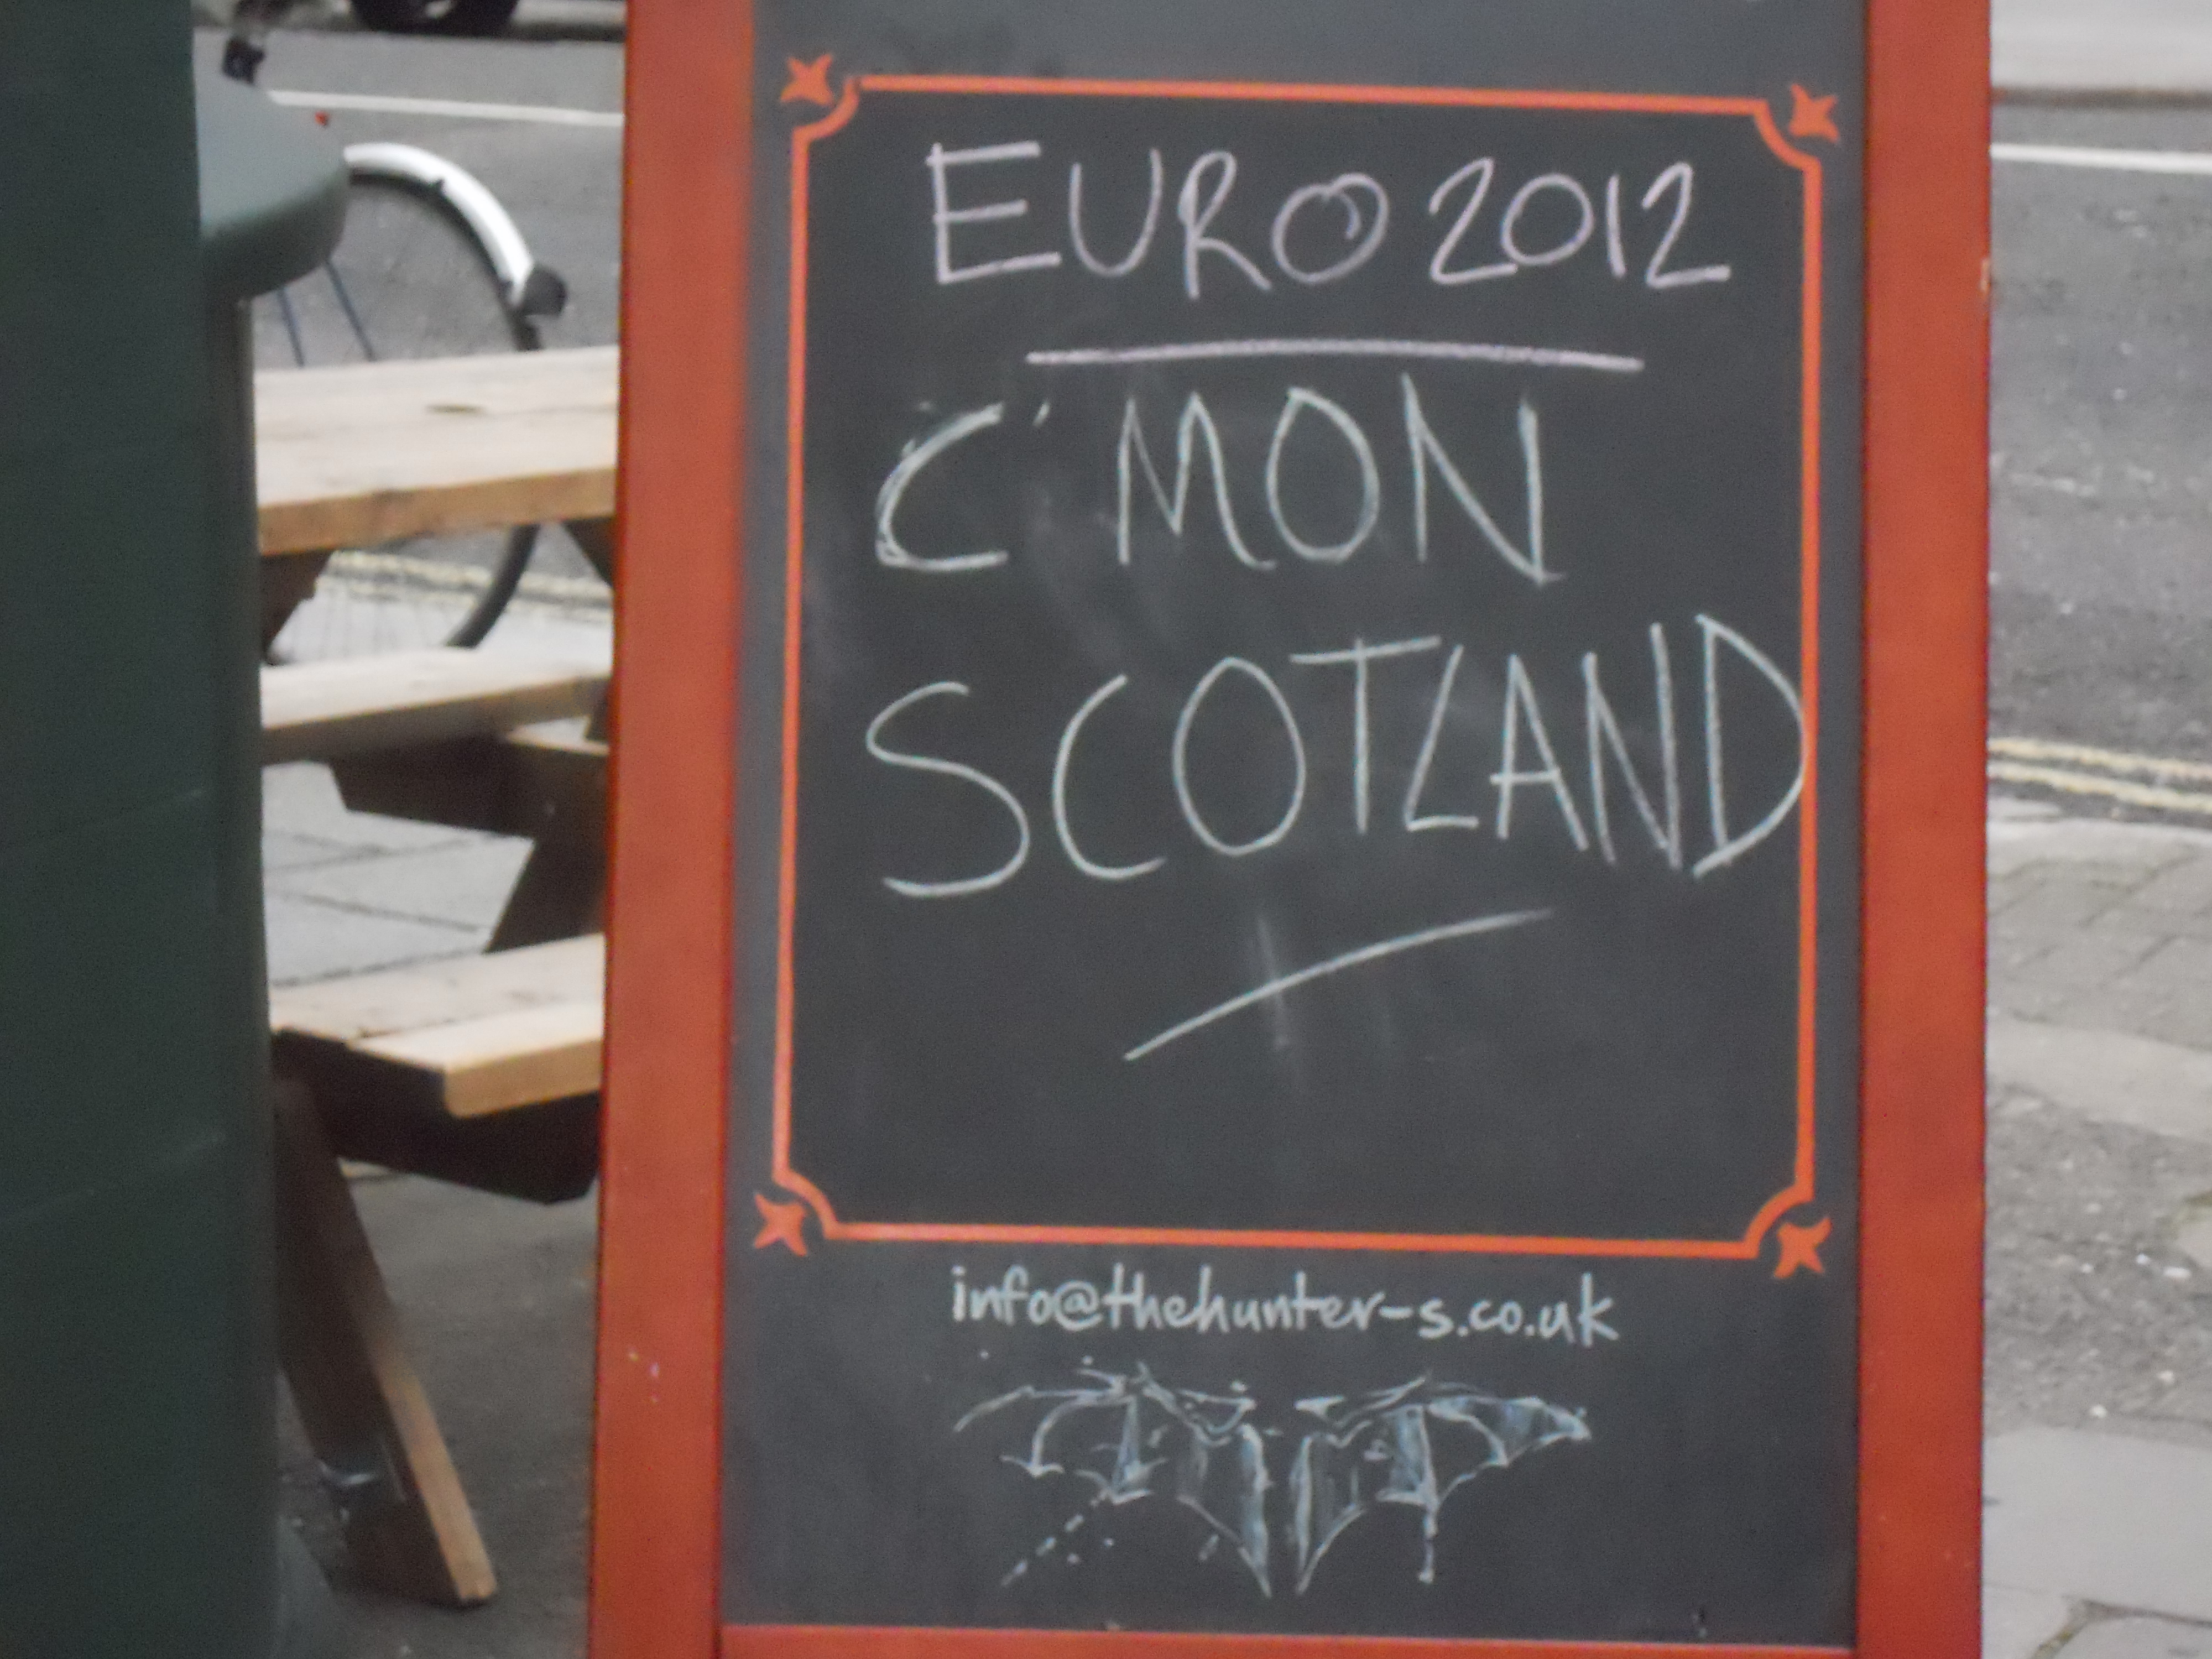 EURO 2012
C'MON
SCOTLAND
info@thehunter-s.co.uk